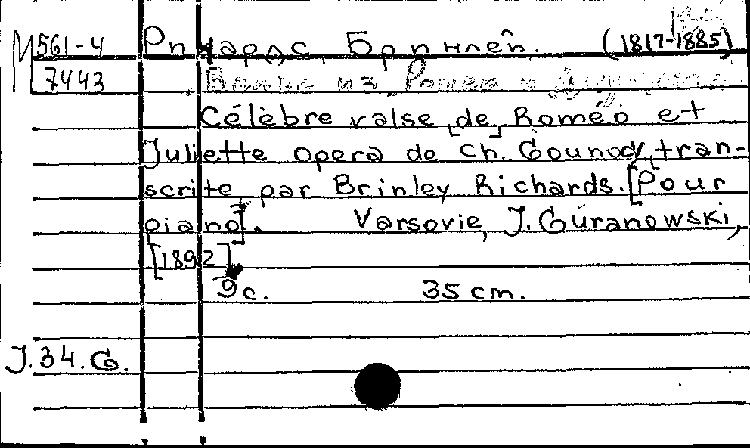 М 561-4 Ричардс, Бринлей. (1817-1885)
7443 Вальс из Ромео и
Célèbre valse [de] Roméo et
Juliette opera de Ch. Gounod, tran-
scrite par Brinley Richards. [Pour
piano]. Varsovie, J. Guranowski,
[1892]
9 с. 35 cm.
J. 34. G.